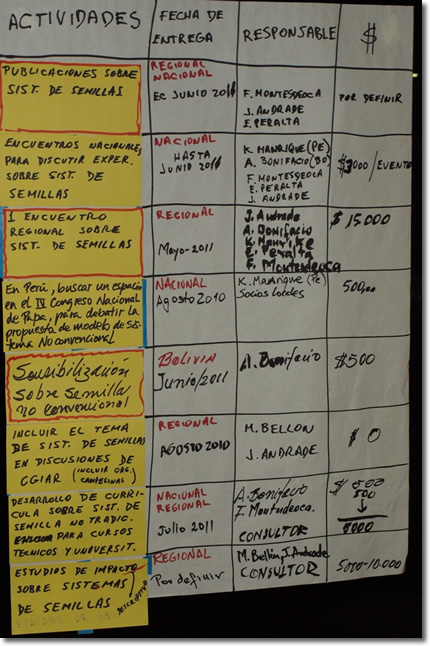 ACTIVIDADES
FECHA DE
ENTREGA
RESPONSABLE
$
PUBLICACIONES SOBRE
SIST. DE SEMILLAS
REGIONAL
NACIONAL
EC JUNIO 2011
F. MONTESDEOCA
J. ANDRADE
E. PERALTA
POR DEFINIR
ENCUENTROS NACIONALES,
PARA DISCUTIR EXPER.
SOBRE SIST. DE
SEMILLAS
NACIONAL
HASTA
JUNIO 2011
K. MANRIQUE (PE)
A. BONIFACIO (BO)
F. MONTESDEOCA
E. PERALTA
J. ANDRADE
$3000/EVENTO
1 ENCUENTRO
REGIONAL SOBRE
SIST. DE SEMILLAS
REGIONAL
Mayo-2011
J. Andrade
A. Bonifacio
K. Manrike
E. Peralta
F. Montedeoca
$ 15.000
En Perú, buscar un espacio
en el IV Congreso Nacional
de Papa, para debatir la
propuesta de modelo de Sis-
tema No convencional
NACIONAL
Agosto 2010
K. Manrique (Pe)
Socios locales
500,00
Sensibilización
Sobre Semilla
no convencional
BOLIVIA
Junio/2011
A. Bonifacio
$500
INCLUIR EL TEMA
DE SIST. DE SEMILLAS
EN DISCUSIONES DE
CGIAR (INCLUIR ORG.
CAMPESINAS)
REGIONAL
AGOSTO 2010
M. BELLON
J. ANDRADE
$ 0
DESARROLLO DE CURRI-
CULA SOBRE SIST. DE
SEMILLA NO TRADIC.
PARA CURSOS
TECNICOS Y UNIVERSIT.
NACIONAL
REGIONAL
Julio 2011
A. Bonifacio
F. Montesdeoca.
CONSULTOR
$ 500
500
↓
5000
ESTUDIOS DE IMPACTO
SOBRE SISTEMAS
DE SEMILLAS
DESCRIPTIVO
REGIONAL
Por definir
M. Bellón, J. Andrade
CONSULTOR
5000-10.000